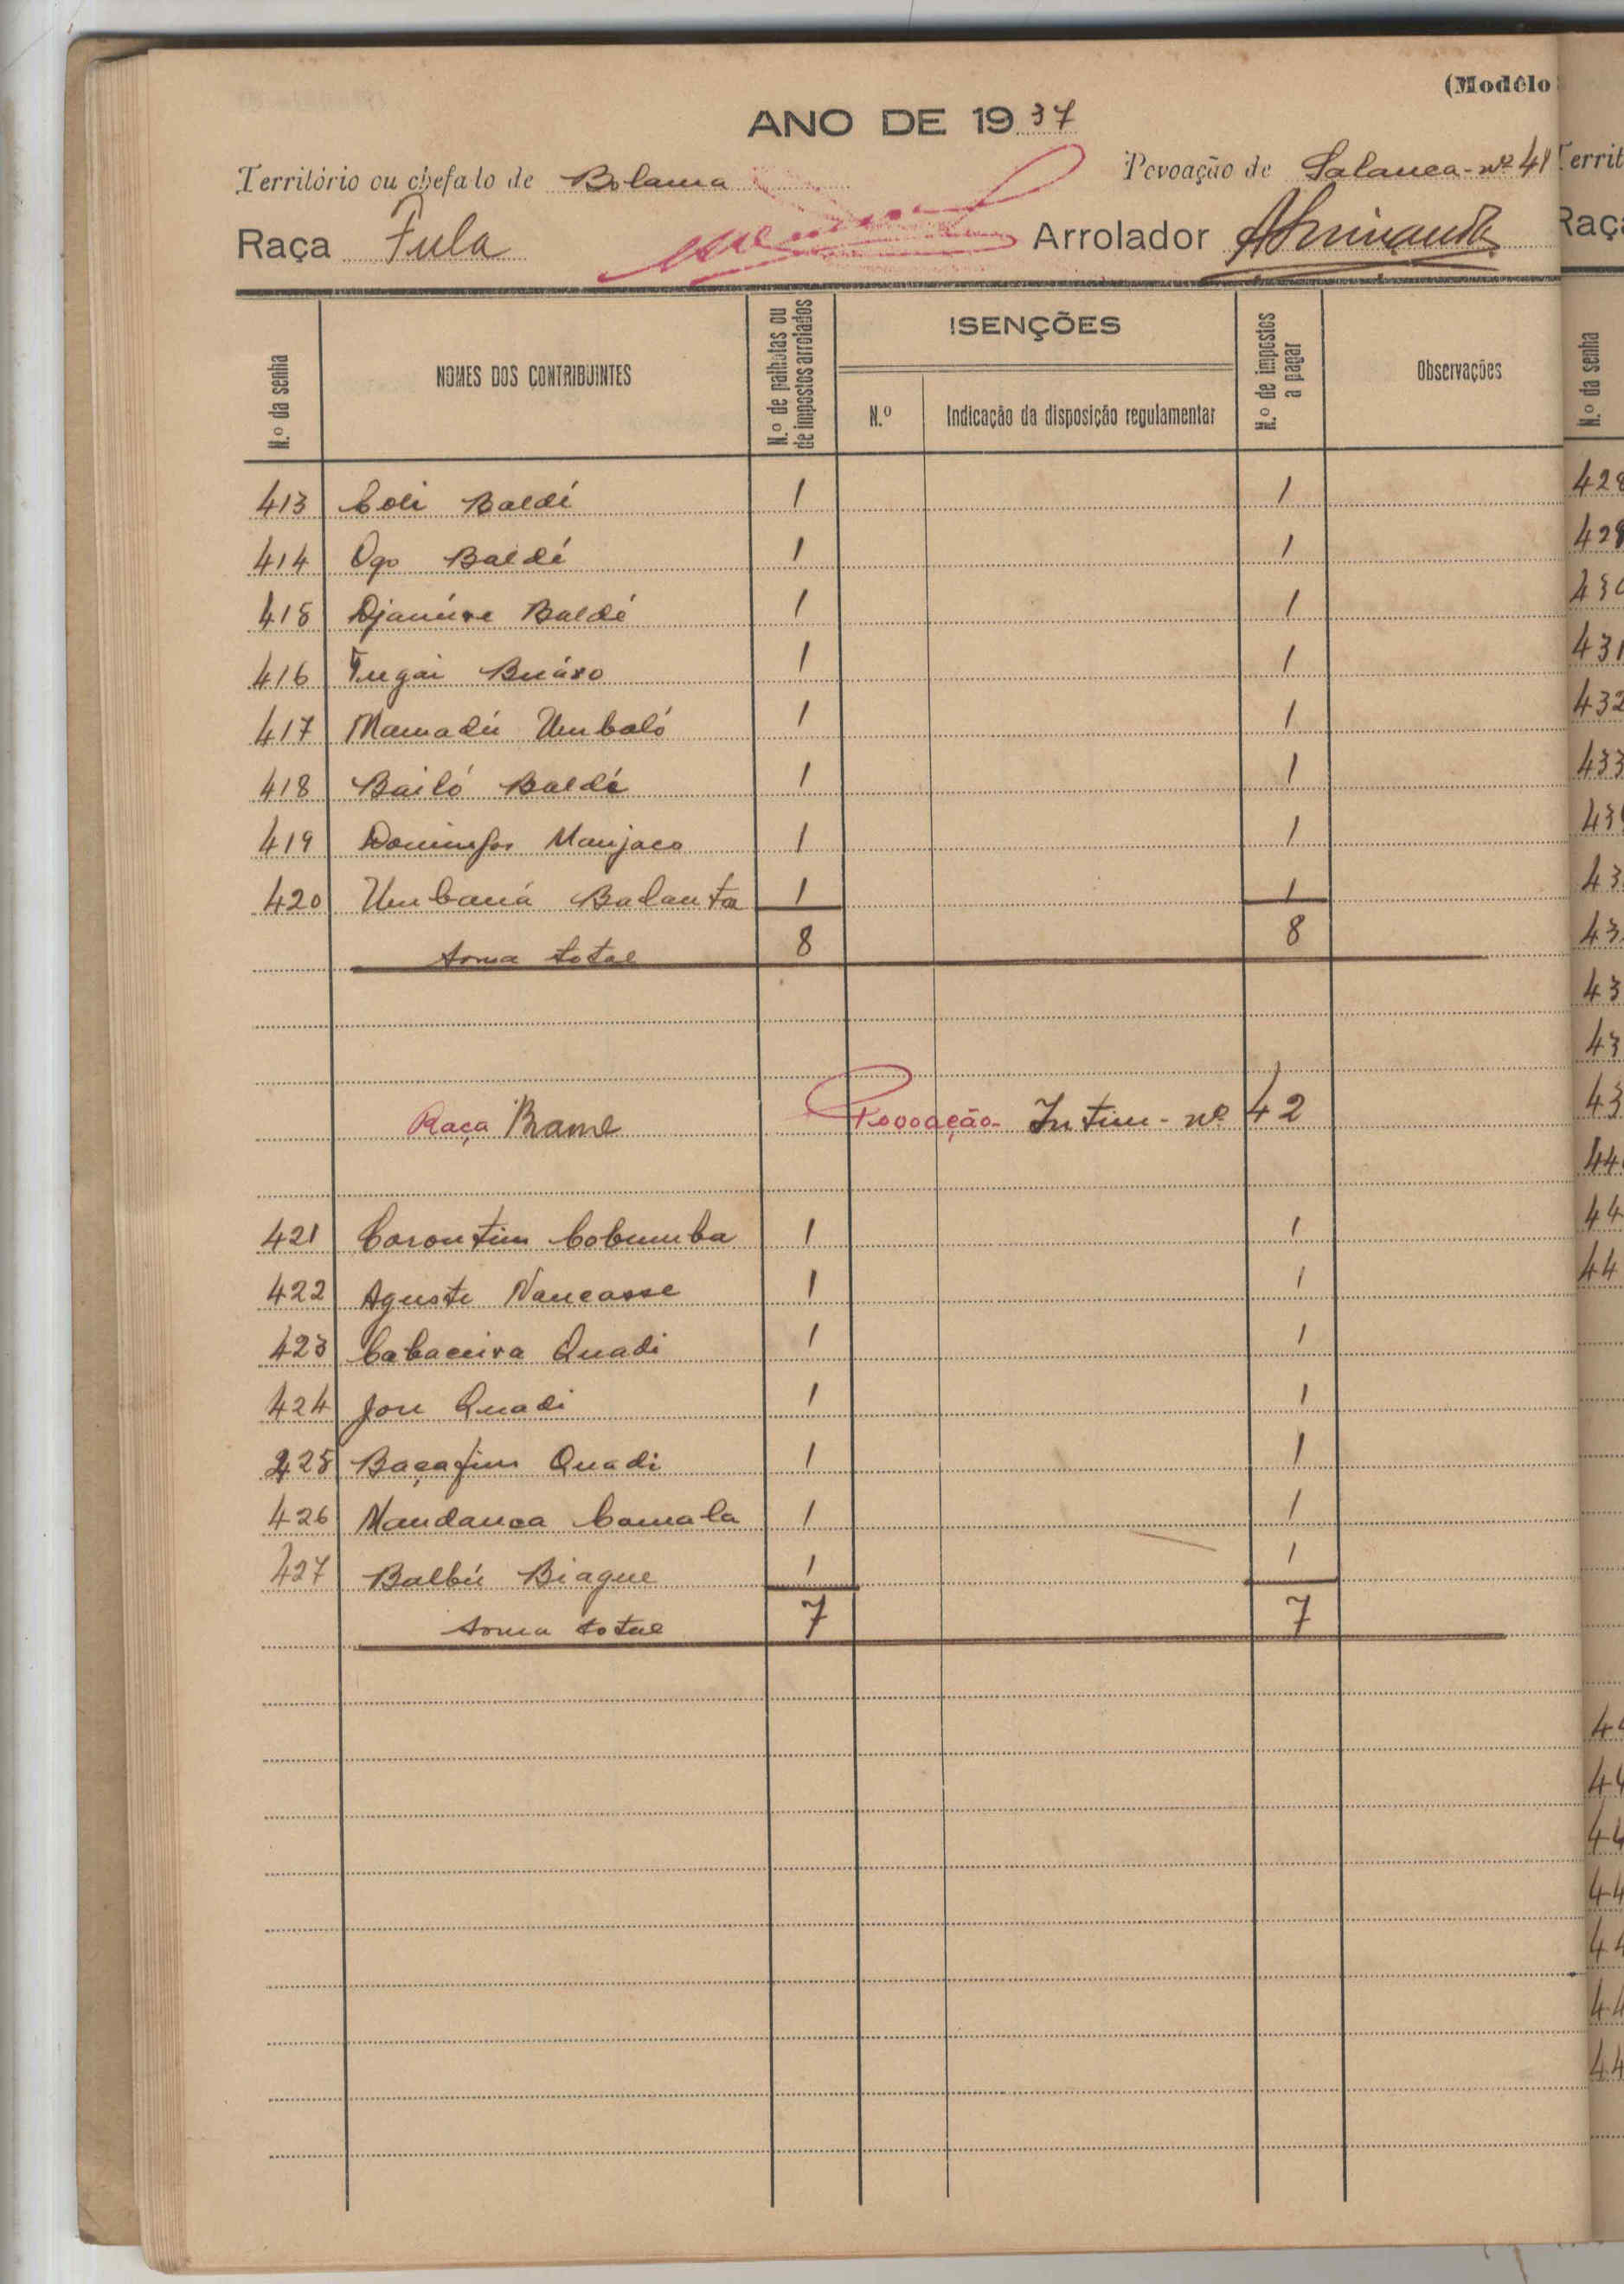 (Modêlo
ANO DE 1937
Território ou chefato de Bolama
Povoação de Salanca - nº 41
Raça Fula
Arrolador
N.º da senha
NOMES DOS CONTRIBUINTES
N.º de palhotas ou de impostos arrolados
ISENÇÕES
N.º
Indicação da disposição regulamentar
N.º de impostos a pagar
Observações
413 Coli Baldé 1 1
414 Ogo Baldé 1 1
415 Baldé 1 1
416 1 1
417 Mamadú Umbaló 1 1
418 Bailó Baldé 1 1
419 Domingos Manjaco 1 1
420 Umbaná Balanta 1 1
Soma total 8 8
Raça Brame Povoação Intim - nº 42
421 Corontim Cobumba 1 1
422 Aguste Nancasse 1 1
423 Cabaceira Quadi 1 1
424 Quadi 1 1
425 Quadi 1 1
426 Mandanca Camala 1 1
427 Balbú Biague 1 1
Soma total 7 7
Territ
Raça
N.º da senha
428
429
430
431
432
433